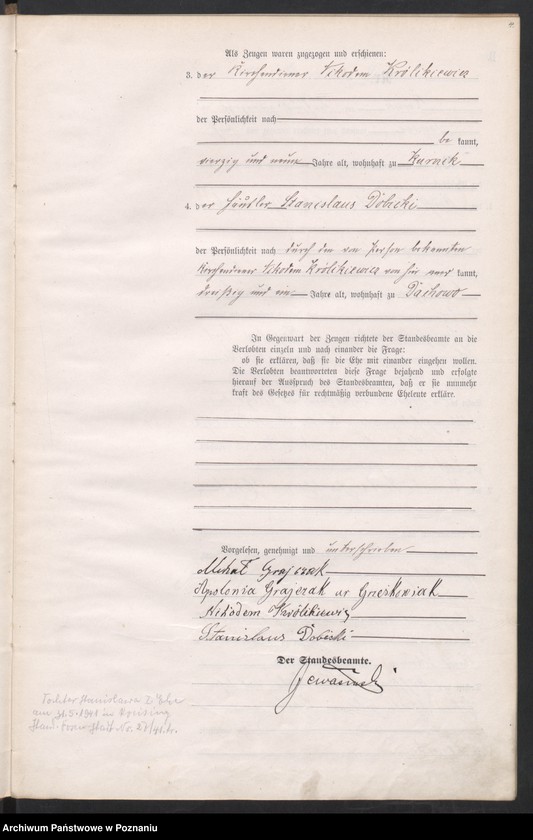 Als Zeugen waren zugezogen und erschienen:
3. der Kirchendiener Nikodem Królikiewicz
der Persönlichkeit nach
be kannt,
vierzig und neun Jahre alt, wohnhaft zu Kurnik
4. der Häusler Stanislaus Dobicki
der Persönlichkeit nach durch den von Person bekannten
Kirchendiener Nikodem Królikiewicz von hier aner kannt,
dreißig und ein Jahre alt, wohnhaft zu Dachowo
In Gegenwart der Zeugen richtete der Standesbeamte an die
Verlobten einzeln und nach einander die Frage:
ob sie erklären, daß sie die Ehe mit einander eingehen wollen.
Die Verlobten beantworteten diese Frage bejahend und erfolgte
hierauf der Ausspruch des Standesbeamten, daß er sie nunmehr
kraft des Gesetzes für rechtmäßig verbundene Eheleute erkläre.
Vorgelesen, genehmigt und unterschrieben
Michał Grajczak
Apolonia Grajczak ur
Nikodem Królikiewicz
Stanislaus Dobicki
Der Standesbeamte.
Tochter Stanislawa
am 31.5.1941 in
No. 27/41.
Archiwum Państwowe w Poznaniu